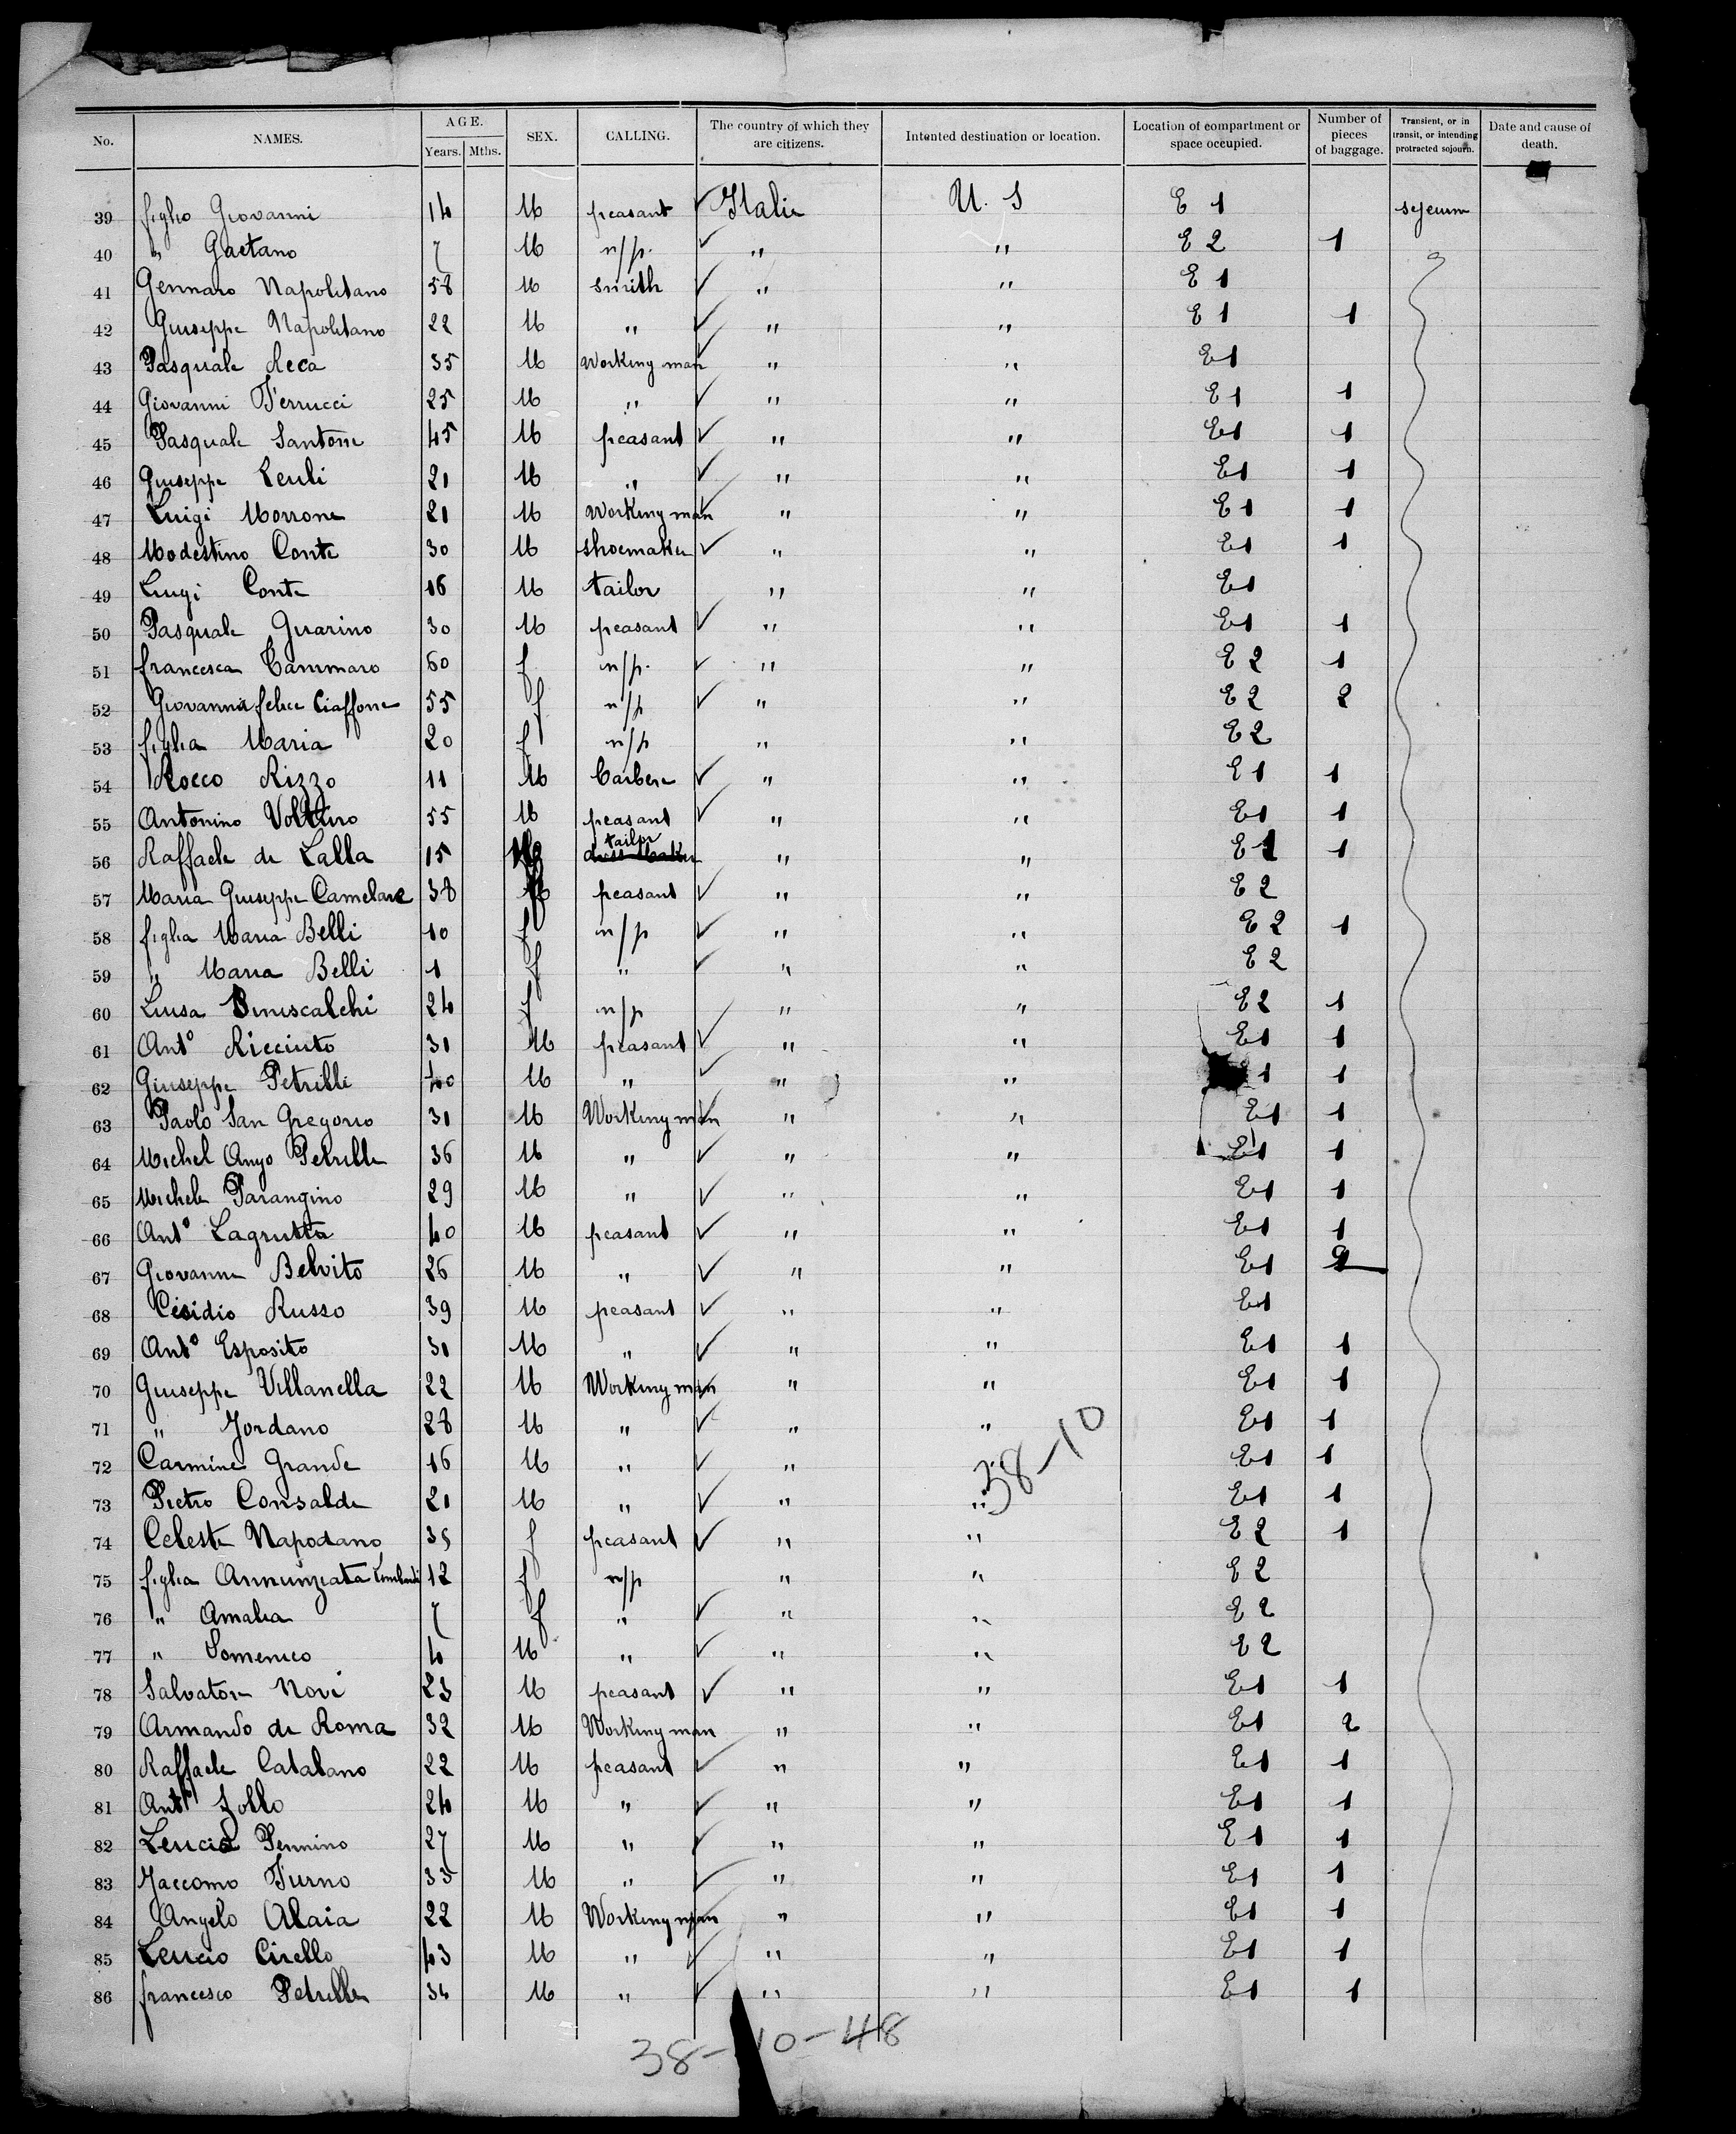 No. NAMES. AGE. Years. Mths. SEX. CALLING. The country of which they are citizens. Intented destination or location. Location of compartment or space occupied. Number of pieces of baggage. Transient, or in transit, or intending protracted sojourn. Date and cause of death.
39 figlio Giovanni 14 M peasant ✓ Italie U. S E 1
40 " Gaetano 7 M n/p. ✓ " " E 2 1
41 Gennaro Napolitano 58 M smith ✓ " " E 1
42 Giuseppe Napolitano 22 M " ✓ " " E 1 1
43 Pasquale Reca 35 M Working man ✓ " " E 1
44 Giovanni Ferrucci 25 M " ✓ " " E 1 1
45 Pasquale Santone 45 M peasant ✓ " " E 1 1
46 Giuseppe 21 M " ✓ " " E 1 1
47 Luigi Morrone 21 M Working man ✓ " " E 1 1
48 Modestino Conte 30 M shoemaker ✓ " " E 1 1
49 Luigi Conte 16 M tailor " " E 1
50 Pasquale Guarino 30 M peasant ✓ " " E 1 1
51 francesca Cammaro 60 f n/p. ✓ " " E 2 1
52 Giovanna felice Ciaffone 55 f n/p ✓ " " E 2 2
53 figlia Maria 20 f n/p " " E 2
54 Rocco Rizzo 11 M Barber ✓ " " E 1 1
55 Antonino Volturo 55 M peasant ✓ " " E 1 1
56 Raffaele de Lalla 15 tailor " " E 1 1
57 Maria Giuseppe Camelare 38 peasant ✓ " " E 2
58 figlia Maria Belli 10 f n/p ✓ " " E 2 1
59 " Maria Belli 1 f " ✓ " " E 2
60 Luisa 24 f n/p " " E 2 1
61 Antº Ricciuto 31 M peasant ✓ " " E 1 1
62 Giuseppe Petrilli 40 M " ✓ " " 1 1
63 Paolo San Gregorio 31 M Working man ✓ " " E 1 1
64 Michel Ango Petrille 36 M " ✓ " " E 1 1
65 Michele Parangino 29 M " ✓ " " E 1 1
66 Antº Lagrutta 40 M peasant ✓ " " E 1 1
67 Giovanni Belvito 26 M " ✓ " " E 1
68 Cesidio Russo 39 M peasant ✓ " " E 1
69 Antº Esposito 31 M " ✓ " " E 1 1
70 Giuseppe Villanella 22 M Working man ✓ " " E 1 1
71 " Jordano 28 M " ✓ " " E 1 1
72 Carmine Grande 16 M " ✓ " " E 1 1
38-10
73 Pietro Consalde 21 M " ✓ " " E 1 1
74 Celeste Napodano 35 f peasant ✓ " " E 2 1
75 figlia Annunziata 12 f n/p " " E 2
76 " Amalia 7 f " ✓ " " E 2
77 " Domenico 4 M " ✓ " " E 2
78 Salvatore Novi 23 M peasant ✓ " " E 1 1
79 Armando de Roma 32 M Working man " " E 1 2
80 Raffaele Catalano 22 M peasant ✓ " " E 1 1
81 Antº Zollo 24 M " ✓ " " E 1 1
82 Leucio Pennino 27 M " ✓ " " E 1 1
83 Jaccomo Furno 33 M " ✓ " " E 1 1
84 Angelo Alaia 22 M Working man ✓ " " E 1 1
85 Leucio Cirello 43 M " ✓ " " E 1 1
86 francesco Petrille 34 M " ✓ " " E 1 1
38-10-48